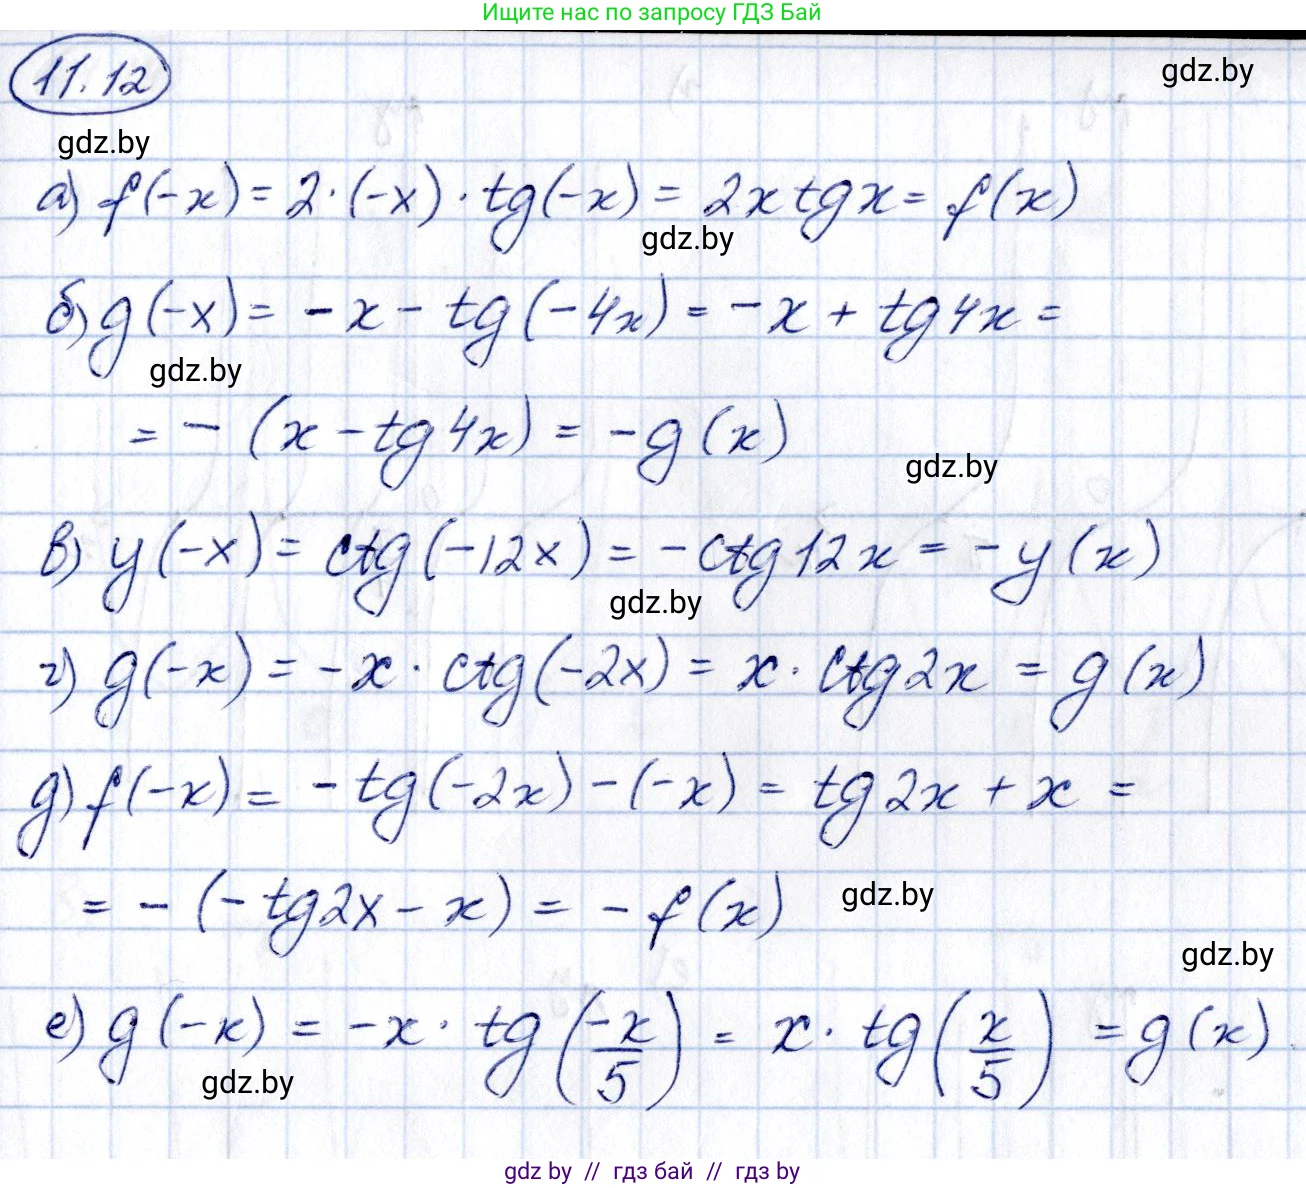 Ищите нас по запросу ГДЗ Бай
11.12
gdz.by
gdz.by
а) f(-x) = 2·(-x)·tg(-x) = 2x tgx = f(x)
gdz.by
б) g(-x) = -x - tg(-4x) = -x + tg4x =
gdz.by
= -(x - tg4x) = -g(x)
gdz.by
в) y(-x) = ctg(-12x) = -ctg12x = -y(x)
gdz.by
г) g(-x) = -x·ctg(-2x) = x·ctg2x = g(x)
д) f(-x) = -tg(-2x) - (-x) = tg2x + x =
= -(-tg2x - x) = -f(x)
gdz.by
gdz.by
е) g(-x) = -x·tg(-x/5) = x·tg(x/5) = g(x)
gdz.by
gdz by // гдз бай // гдз by